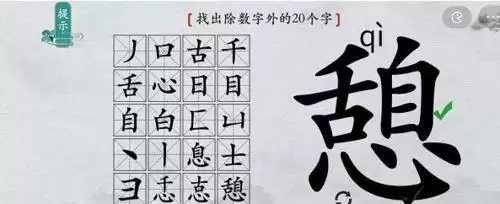 提示
[找出除数字外的20个字]
qì
丿口古千
舌心日目
自白匚凵
丶丨息士
彐忎㤐憩
憩